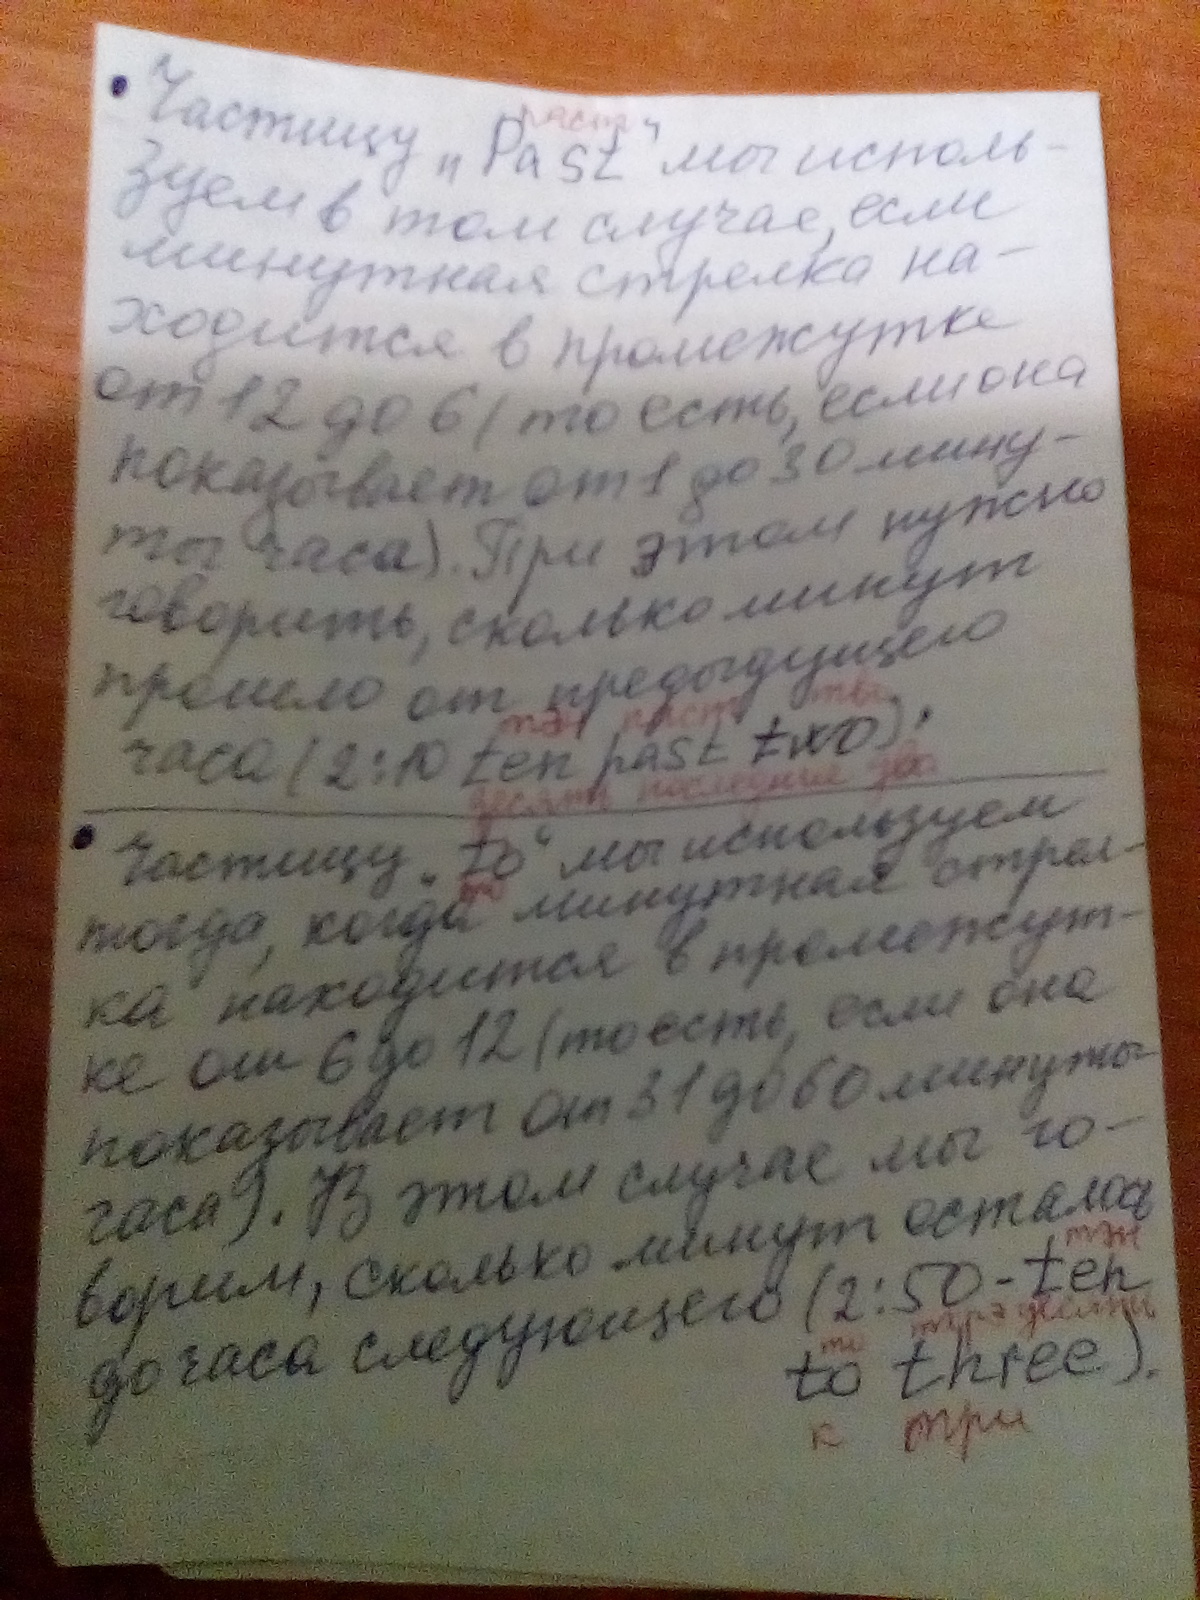 паст
• Частицу „Past“ мы исполь-
зуем в том случае, если
минутная стрелка на-
ходится в промежутке
от 12 до 6 (то есть, если она
показывает от 1 до 30 мину-
ты часа). При этом нужно
говорить, сколько минут
прошло от предыдущего
тэн паст
часа (2:10 ten past two).
десять последние два
• Частицу „to“ мы используем
то
тогда, когда минутная стрел-
ка находится в промежут-
ке от 6 до 12 (то есть, если она
показывает от 31 до 60 минуты
часа). В этом случае мы го-
ворим, сколько минут осталось
тэн
до часа следующего (2:50 - ten
то десять
to three).
к три